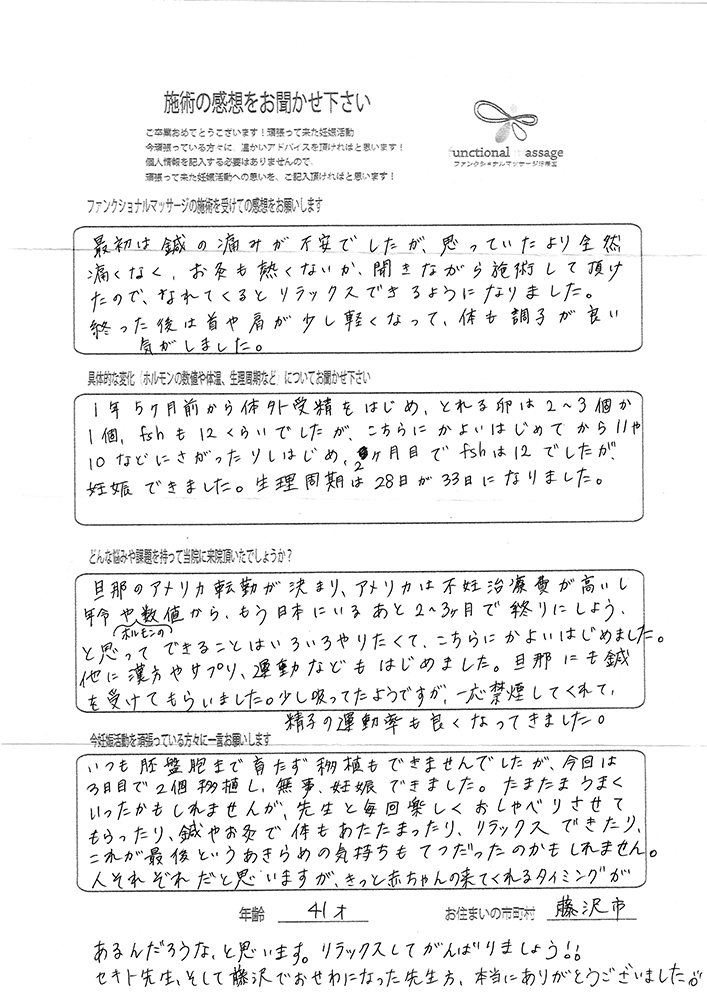 施術の感想をお聞かせ下さい
ご卒業おめでとうございます！頑張って来た妊娠活動
今頑張っている方々に、温かいアドバイスを頂ければと思います！
個人情報を記入する必要はありませんので、
頑張って来た妊娠活動への思いを、ご記入頂ければと思います！
functional massage
ファンクショナルマッサージ治療室
ファンクショナルマッサージの施術を受けての感想をお願いします
最初は鍼の痛みが不安でしたが、思っていたより全然
痛くなく、お灸も熱くないか、聞きながら施術して頂け
たので、なれてくるとリラックスできるようになりました。
終った後は首や肩が少し軽くなって、体も調子が良い
気がしました。
具体的な変化（ホルモンの数値や体温、生理周期など）についてお聞かせ下さい
1年5ヶ月前から体外受精をはじめ、とれる卵は2～3個か
1個、fshも12くらいでしたが、こちらにかよいはじめてから11や
10などにさがったりしはじめ、2ヶ月目でfshは12でしたが、
妊娠できました。生理周期は28日が33日になりました。
どんな悩みや課題を持って当院に来院頂いたでしょうか？
旦那のアメリカ転勤が決まり、アメリカは不妊治療費が高いし
年令や数値から、もう日本にいるあと2～3ヶ月で終りにしよう、
ホルモンの
と思ってできることはいろいろやりたくて、こちらにかよいはじめました。
他に漢方やサプリ、運動などもはじめました。旦那にも鍼
を受けてもらいました。少し吸ってたようですが、一応禁煙してくれて、
精子の運動率も良くなってきました。
今妊娠活動を頑張っている方々に一言お願いします
いつも胚盤胞まで育たず移植もできませんでしたが、今回は
3日目で2個移植し、無事、妊娠できました。たまたまうまく
いったかもしれませんが、先生と毎回楽しくおしゃべりさせて
もらったり、鍼やお灸で体もあたたまったり、リラックスできたり、
これが最後というあきらめの気持ちもてつだったのかもしれません。
人それぞれだと思いますが、きっと赤ちゃんの来てくれるタイミングが
年齢 41才 お住まいの市町村 藤沢市
あるんだろうな、と思います。リラックスしてがんばりましょう!!
セキト先生、そして藤沢でおせわになった先生方、本当にありがとうございました